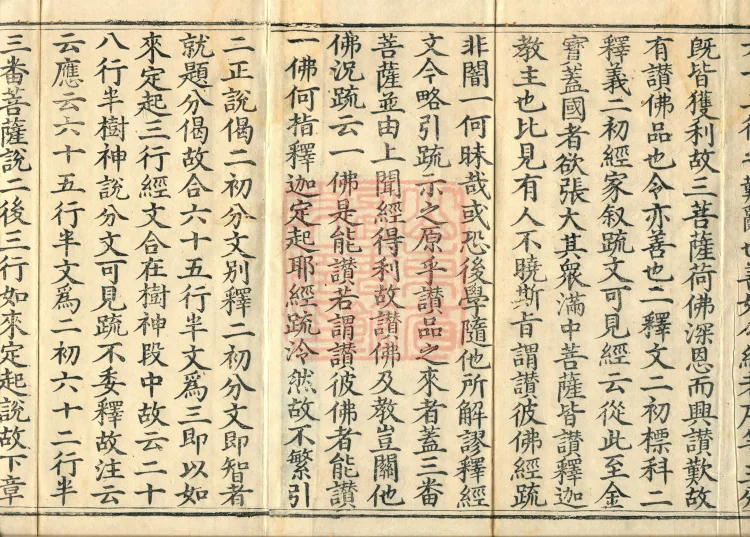 既皆獲利故三菩薩荷佛深恩而興讃歎故
有讃佛品也令亦善也二釋文二初標科二
釋義二初經家叙疏文可見經云從此至金
寳蓋國者欲張大其衆滿中菩薩皆讃釋迦
教主也比見有人不曉斯旨謂讃彼佛經疏
非闇一何昧哉或恐後學隨他所解謬釋經
文今略引疏示之原乎讃品之來者蓋三番
菩薩並由上聞經得利故讃佛及教豈關他
佛況疏云一佛是能讃若謂讃彼佛者能讃
一佛何指釋迦定起耶經疏泠然故不繁引
二正說偈二初分文別釋二初分文即智者
就題分偈故合六十五行半文爲三即以如
來定起三行經文合在樹神段中故云二十
八行半樹神說分文可見疏不委釋故注云
云應云六十五行半文爲二初六十二行半
三番菩薩說二後三行如來定起說故下章